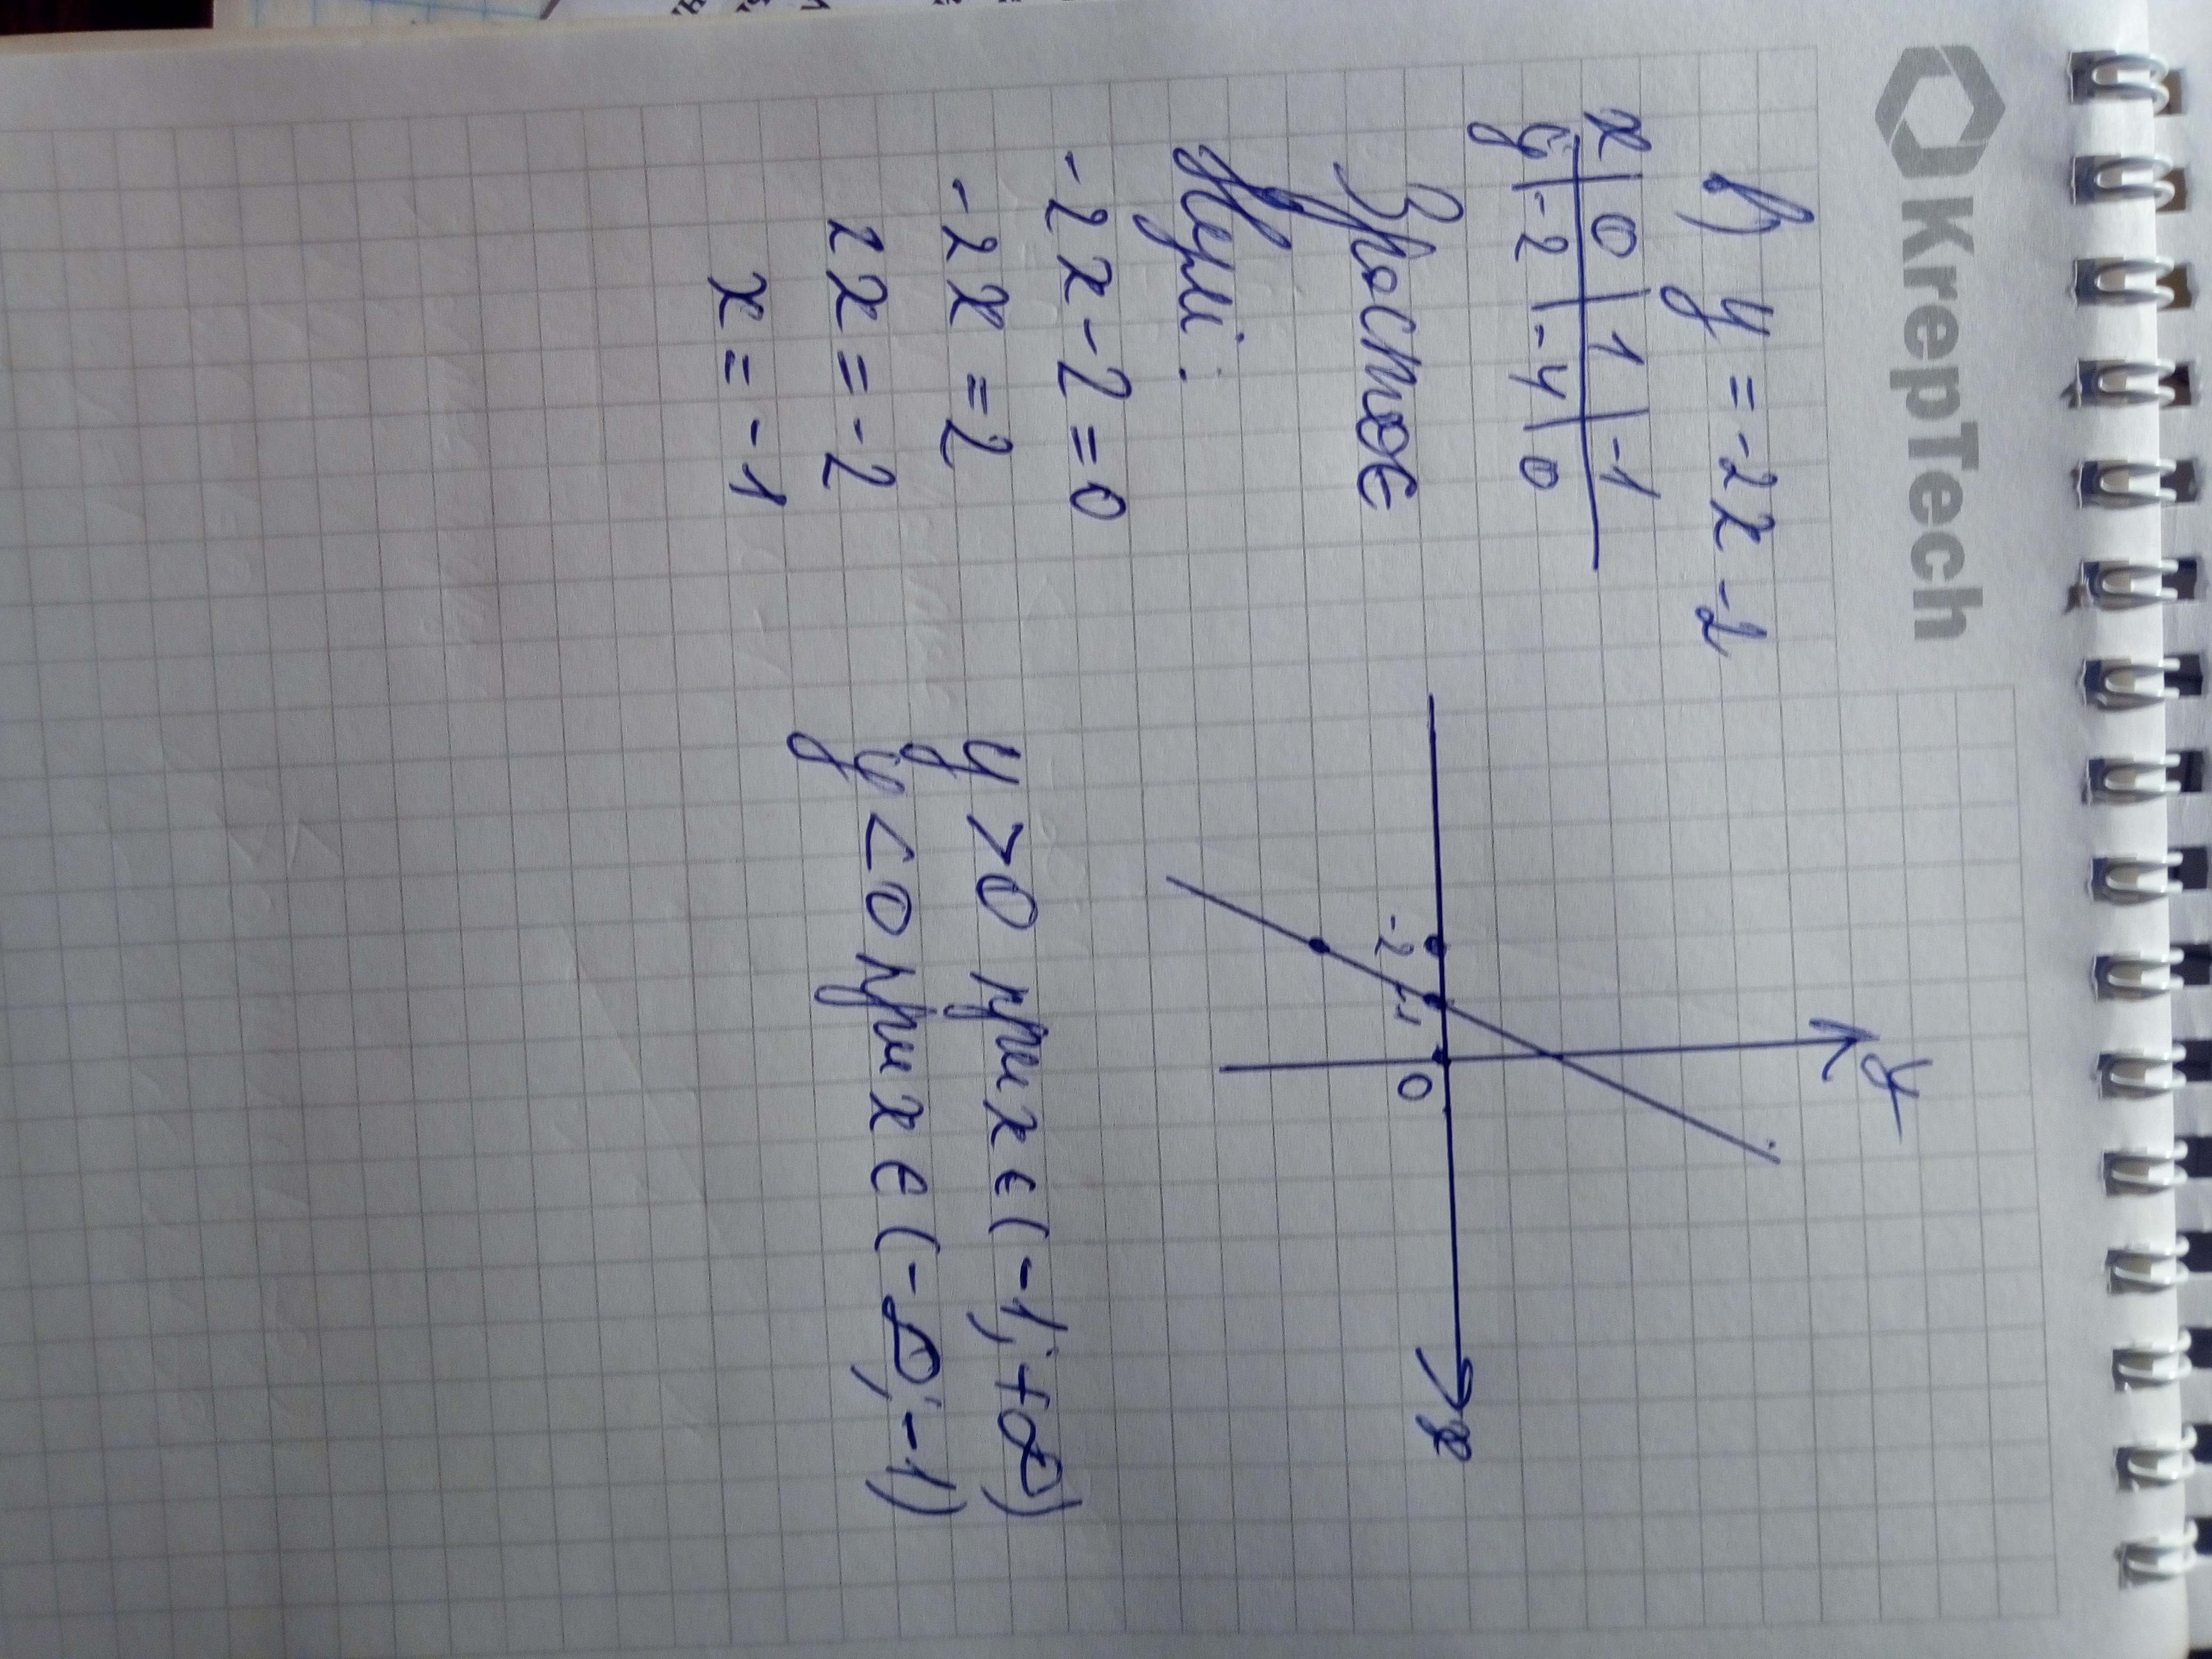 KrepTech
в) y = -2x -2
x | 0 | 1 | -1
y | -2 | -4 | 0
Зростає
Нулі:
-2x-2=0
-2x=2
2x=-2
x=-1
y
x
-2 -1 0
y>0 при x ϵ (-1; +∞)
y<0 при x ϵ (-∞; -1)